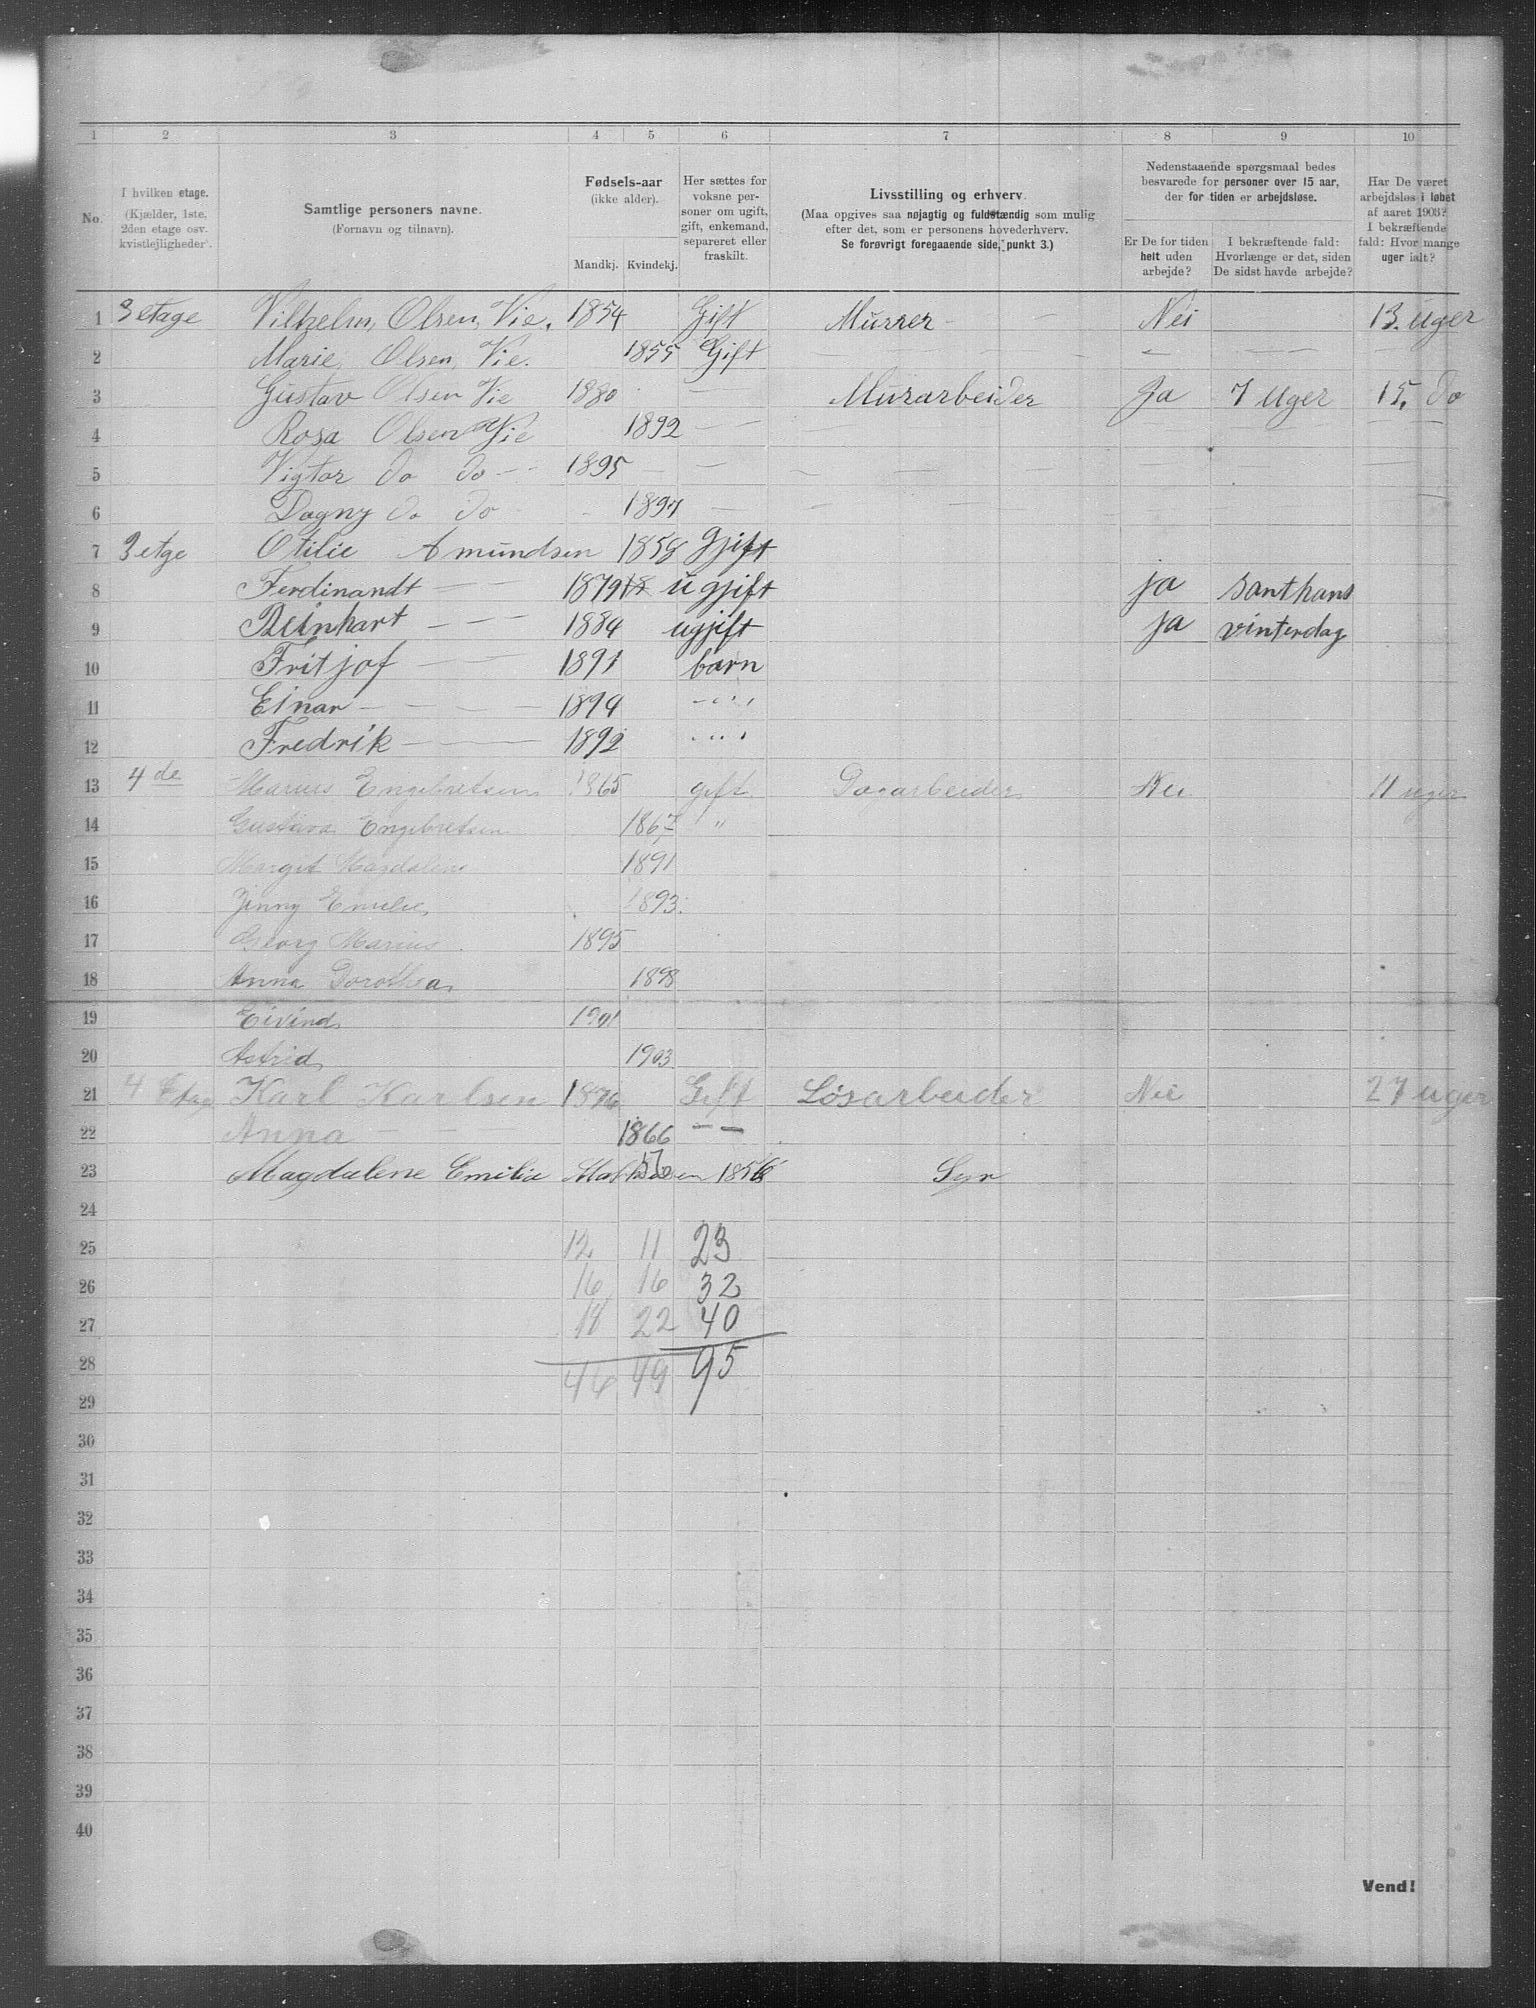 1 2 3 4 5 6 7 8 9 10
No.
I hvilken etage.
(Kjælder, 1ste,
2den etage osv.
kvistlejligheder).
Samtlige personers navne.
(Fornavn og tilnavn).
Fødsels-aar
(ikke alder).
Mandkj. Kvindekj.
Her sættes for
voksne per-
soner om ugift,
gift, enkemand,
separeret eller
fraskilt.
Livsstilling og erhverv.
(Maa opgives saa nøjagtig og fuldstændig som mulig
efter det, som er personens hovederhverv.
Se forøvrigt foregaaende side, punkt 3.)
Nedenstaaende spørgsmaal bedes
besvarede for personer over 15 aar,
der for tiden er arbejdsløse.
Er De for tiden
helt uden
arbejde?
I bekræftende fald:
Hvorlænge er det, siden
De sidst havde arbejde?
Har De været
arbejdsløs i løbet
af aaret 1903?
I bekræftende
fald: Hvor mange
uger ialt?
1 3 etage Vilhelm, Olsen, Vie. 1854 Gift Murrer - - Nei 13. uger
2 Marie, Olsen, Vie. 1855 Gift
3 Gustav Olsen Vie 1880 - Murarbeider Ja 7 Uger 15. do
4 Rosa Olsen Vie 1892 -
5 Vigtor do do - 1895 - -
6 Dagny do do - 1897 -
7 3 etge Otilie Amundsen 1858 gjift
8 Ferdinandt - - 1879 18 ugjift ja santhans
9 Beinhart - - - 1884 ugjift ja vinterdag
10 Fritjof - - 1891 barn
11 Einar - - - - 1894 - " "
12 Fredrik - - 1892 " " "
13 4 de Marius Engebretsen 1865 gift. Dagarbeider Nei 11 uger
14 Gustava Engebretsen 1867 "
15 Margit Magdalene 1891
16 Jenny Emilie, 1893.
17 Georg Marius 1895
18 Anna Dorothea, 1898
19 Eivind 1901
20 Astrid, 1903
21 4 Etage Karl Karlsen 1876 Gift Løsarbeider Nei 27 uger
22 Anna - - - 1866 - -
23 Magdalene Emilie 1856 Syr
24
25 12 11 23
26 16 16 32
27 18 22 40
28 46 49 95
29
30
31
32
33
34
35
36
37
38
39
40
Vend!